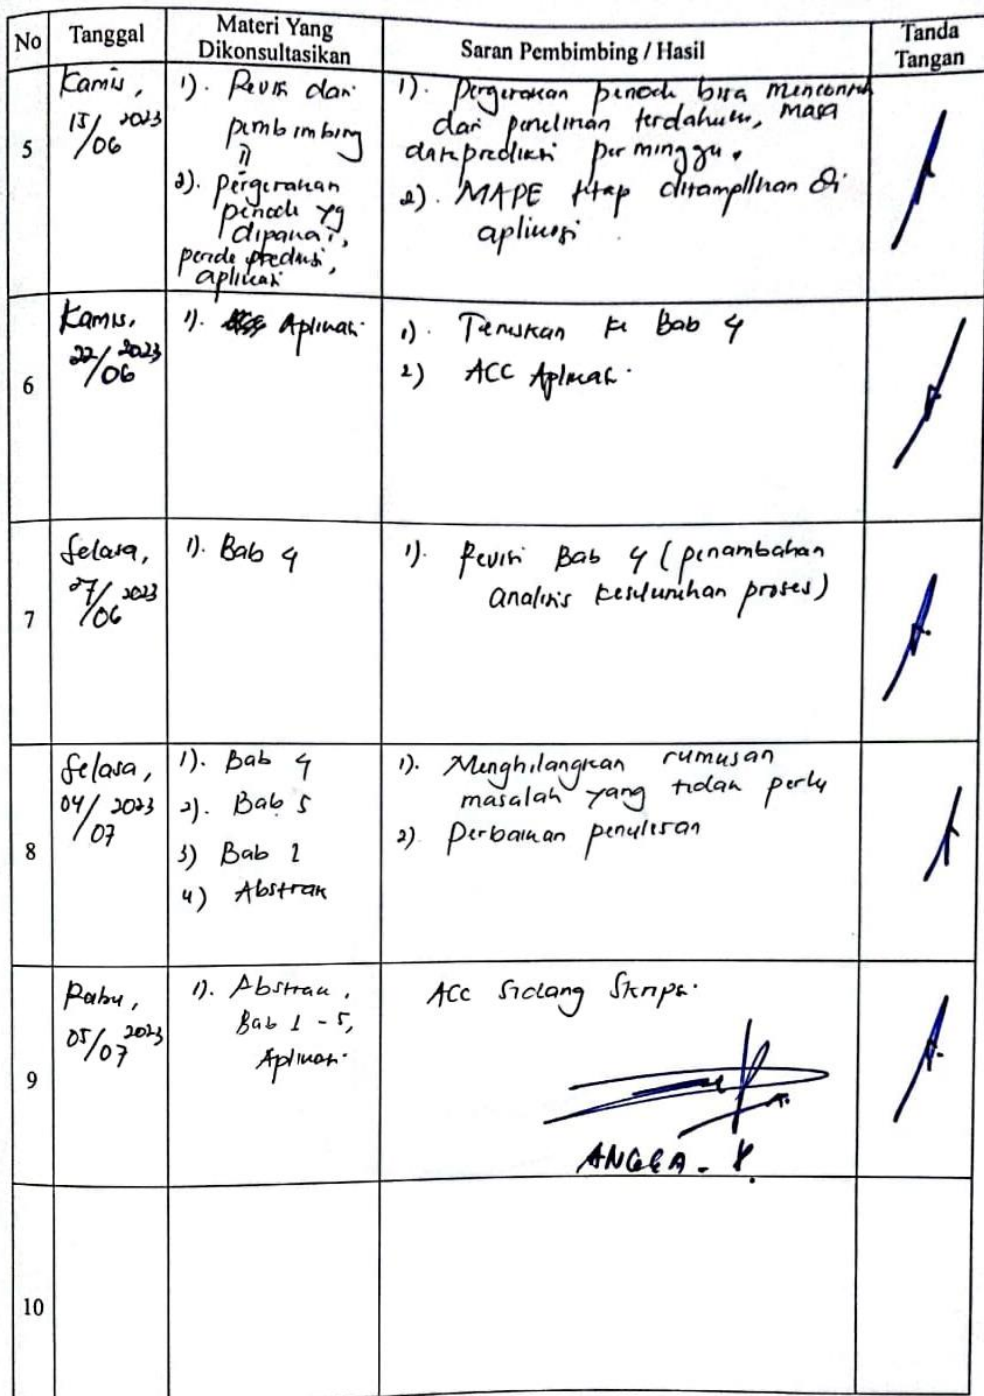 No Tanggal Materi Yang Dikonsultasikan Saran Pembimbing / Hasil Tanda Tangan
5
Kamis,
15/06 2023
1). Revisi dari
pembimbing
II
2). Pergerakan
periode yg
dipakai,
periode prediksi,
aplikasi
1). Pergerakan periode bisa mencontoh
dari penelitian terdahulu, masa
data prediksi per minggu.
2). MAPE tetap ditampilkan di
aplikasi
6
Kamis,
22/06 2023
1). Aplikasi
1). Teruskan ke Bab 4
2) ACC Aplikasi
7
Selasa,
27/06 2023
1). Bab 4
1). Revisi Bab 4 (penambahan
analisis keseluruhan proses)
8
Selasa,
04/07 2023
1). Bab 4
2). Bab 5
3) Bab 1
4) Abstrak
1). Menghilangkan rumusan
masalah yang tidak perlu
2) Perbaikan penulisan
9
Rabu,
05/07 2023
1). Abstrak,
Bab 1 - 5,
Aplikasi
ACC Sidang Skripsi
ANGGA. Y.
10